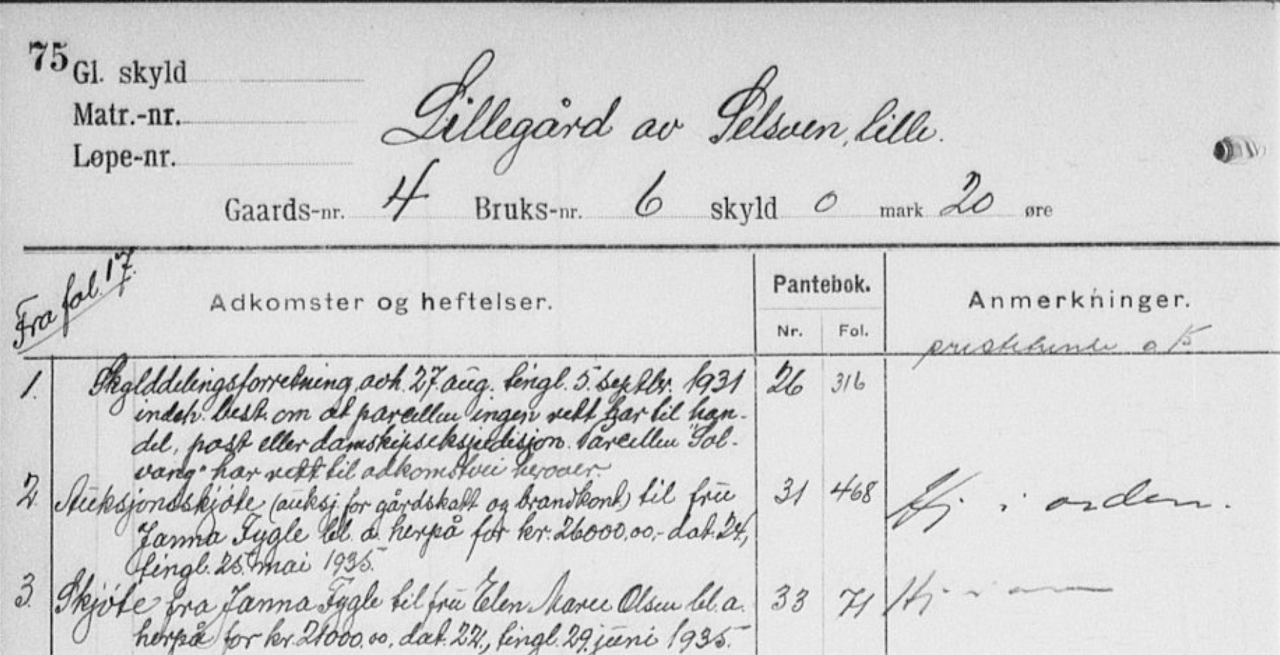 75
Gl. skyld
Matr.-nr.
Løpe-nr.
Lillegård av Selsven, lille.
Gaards-nr. 4 Bruks-nr. 6 skyld 0 mark 20 øre
Fra fol. 17.
Adkomster og heftelser.
Pantebok.
Nr. Fol.
Anmerkninger.
1. Skylddelingsforretning avh. 27. aug. tingl. 5. septbr. 1931 26 316
indeh. best. om at parcellen ingen rett har til han-
del, post eller damskipseksjedisjon. Parcellen "Sol-
vang" har rett til adkomstvei herover
2. Auksjonsskjøte (auksj. for gårdskatt og brandkont) til fru 31 468 Hj i orden.
Janna Fygle bl. a. herpå for kr. 26000.00,- dat. 24,
tingl. 25. mai 1935.
3. Skjøte fra Janna Fygle til fru Elen Maree Olsen bl. a. 33 71 Hj
herpå for kr. 21000.00, dat. 22., tingl. 29. juni 1935.